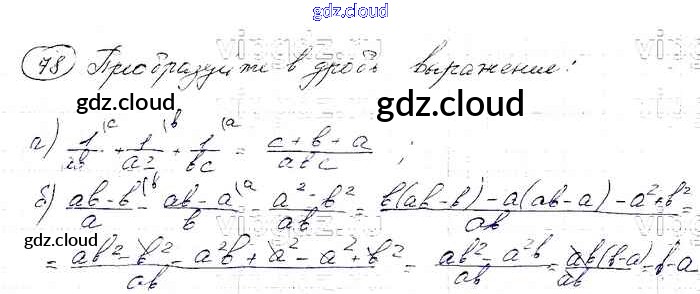 gdz.cloud
78 Преобразуйте в дробь выражение:
gdz.cloud
gdz.cloud
а) 1/ab (c + 1/ac (b + 1/bc (a = (c + b + a)/abc ;
б) (ab - b)/a (b - (ab - a)/b (a - (a² - b²)/ab = (b(ab - b) - a(ab - a) - a² + b²)/ab =
gdz.cloud
= (ab² - b² - a²b + a² - a² + b²)/ab = (ab² - a²b)/ab = ab(b - a)/ab = b - a
gdz.cloud